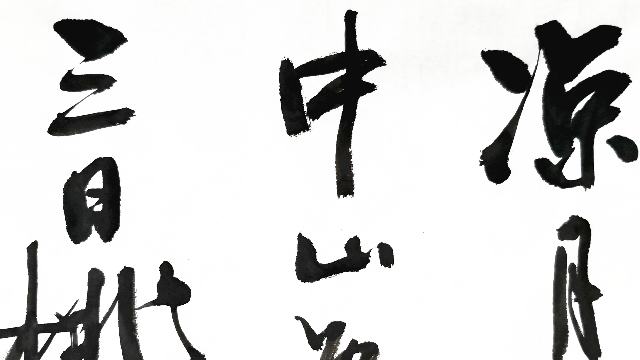 凉月
中山
三日桃